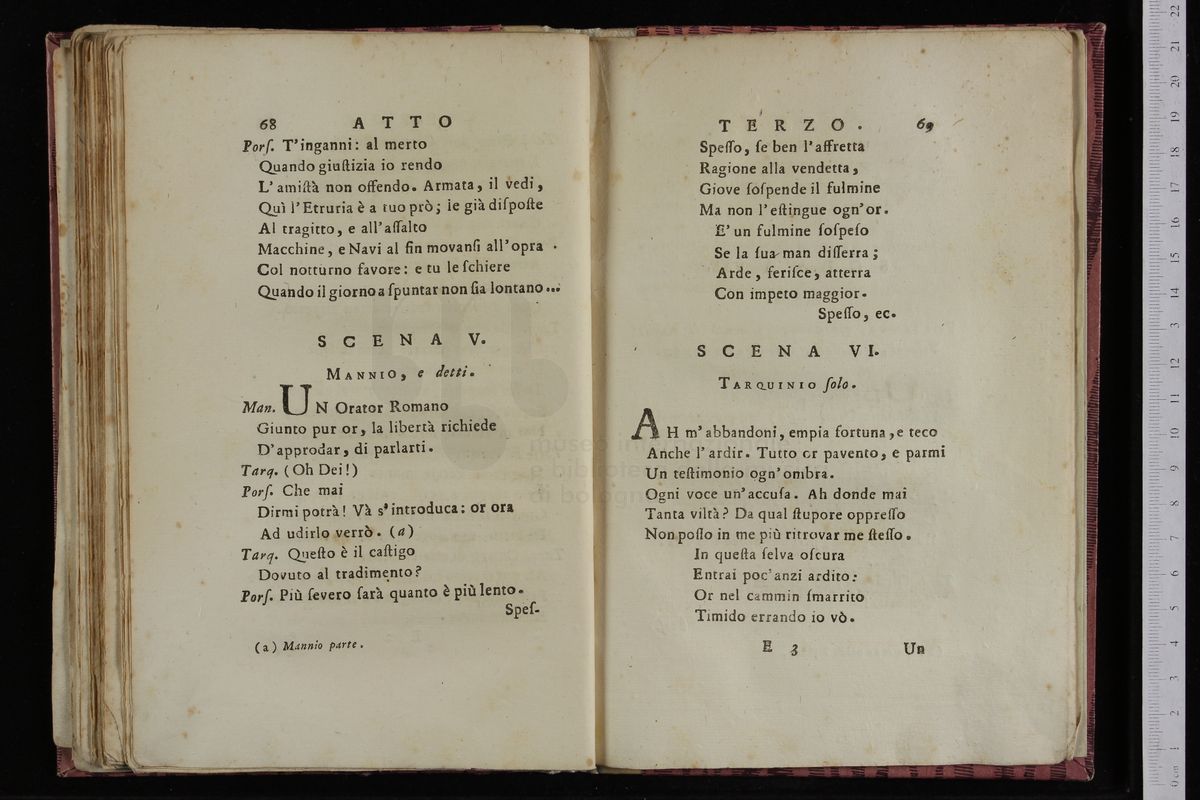 68 ATTO
Porſ. T'inganni: al merto
Quando giuſtizia io rendo
L'amiſtà non offendo. Armata, il vedi,
Quì l'Etruria è a tuo prò; ie già diſpoſte
Al tragitto, e all'aſſalto
Macchine, e Navi al fin movanſi all'opra.
Col notturno favore: e tu le ſchiere
Quando il giorno a ſpuntar non ſia lontano...
SCENA V.
MANNIO, e detti.
Man. UN Orator Romano
Giunto pur or, la libertà richiede
D'approdar, di parlarti.
Tarq. (Oh Dei!)
Porſ. Che mai
Dirmi potrà! Và s'introduca: or ora
Ad udirlo verrò. (a)
Tarq. Queſto è il caſtigo
Dovuto al tradimento?
Porſ. Più ſevero ſarà quanto è più lento.
Speſ-
(a) Mannio parte.
TERZO. 69
Speſſo, ſe ben l'affretta
Ragione alla vendetta,
Giove ſoſpende il fulmine
Ma non l'eſtingue ogn'or.
E' un fulmine ſoſpeſo
Se la ſua man diſſerra;
Arde, feriſce, atterra
Con impeto maggior.
Speſſo, ec.
SCENA VI.
TARQUINIO ſolo.
AH m'abbandoni, empia fortuna, e teco
Anche l'ardir. Tutto or pavento, e parmi
Un teſtimonio ogn'ombra.
Ogni voce un'accuſa. Ah donde mai
Tanta viltà? Da qual ſtupore oppreſſo
Non poſſo in me più ritrovar me ſteſſo.
In queſta ſelva oſcura
Entrai poc'anzi ardito:
Or nel cammin ſmarrito
Timido errando io vò.
E 3 Un